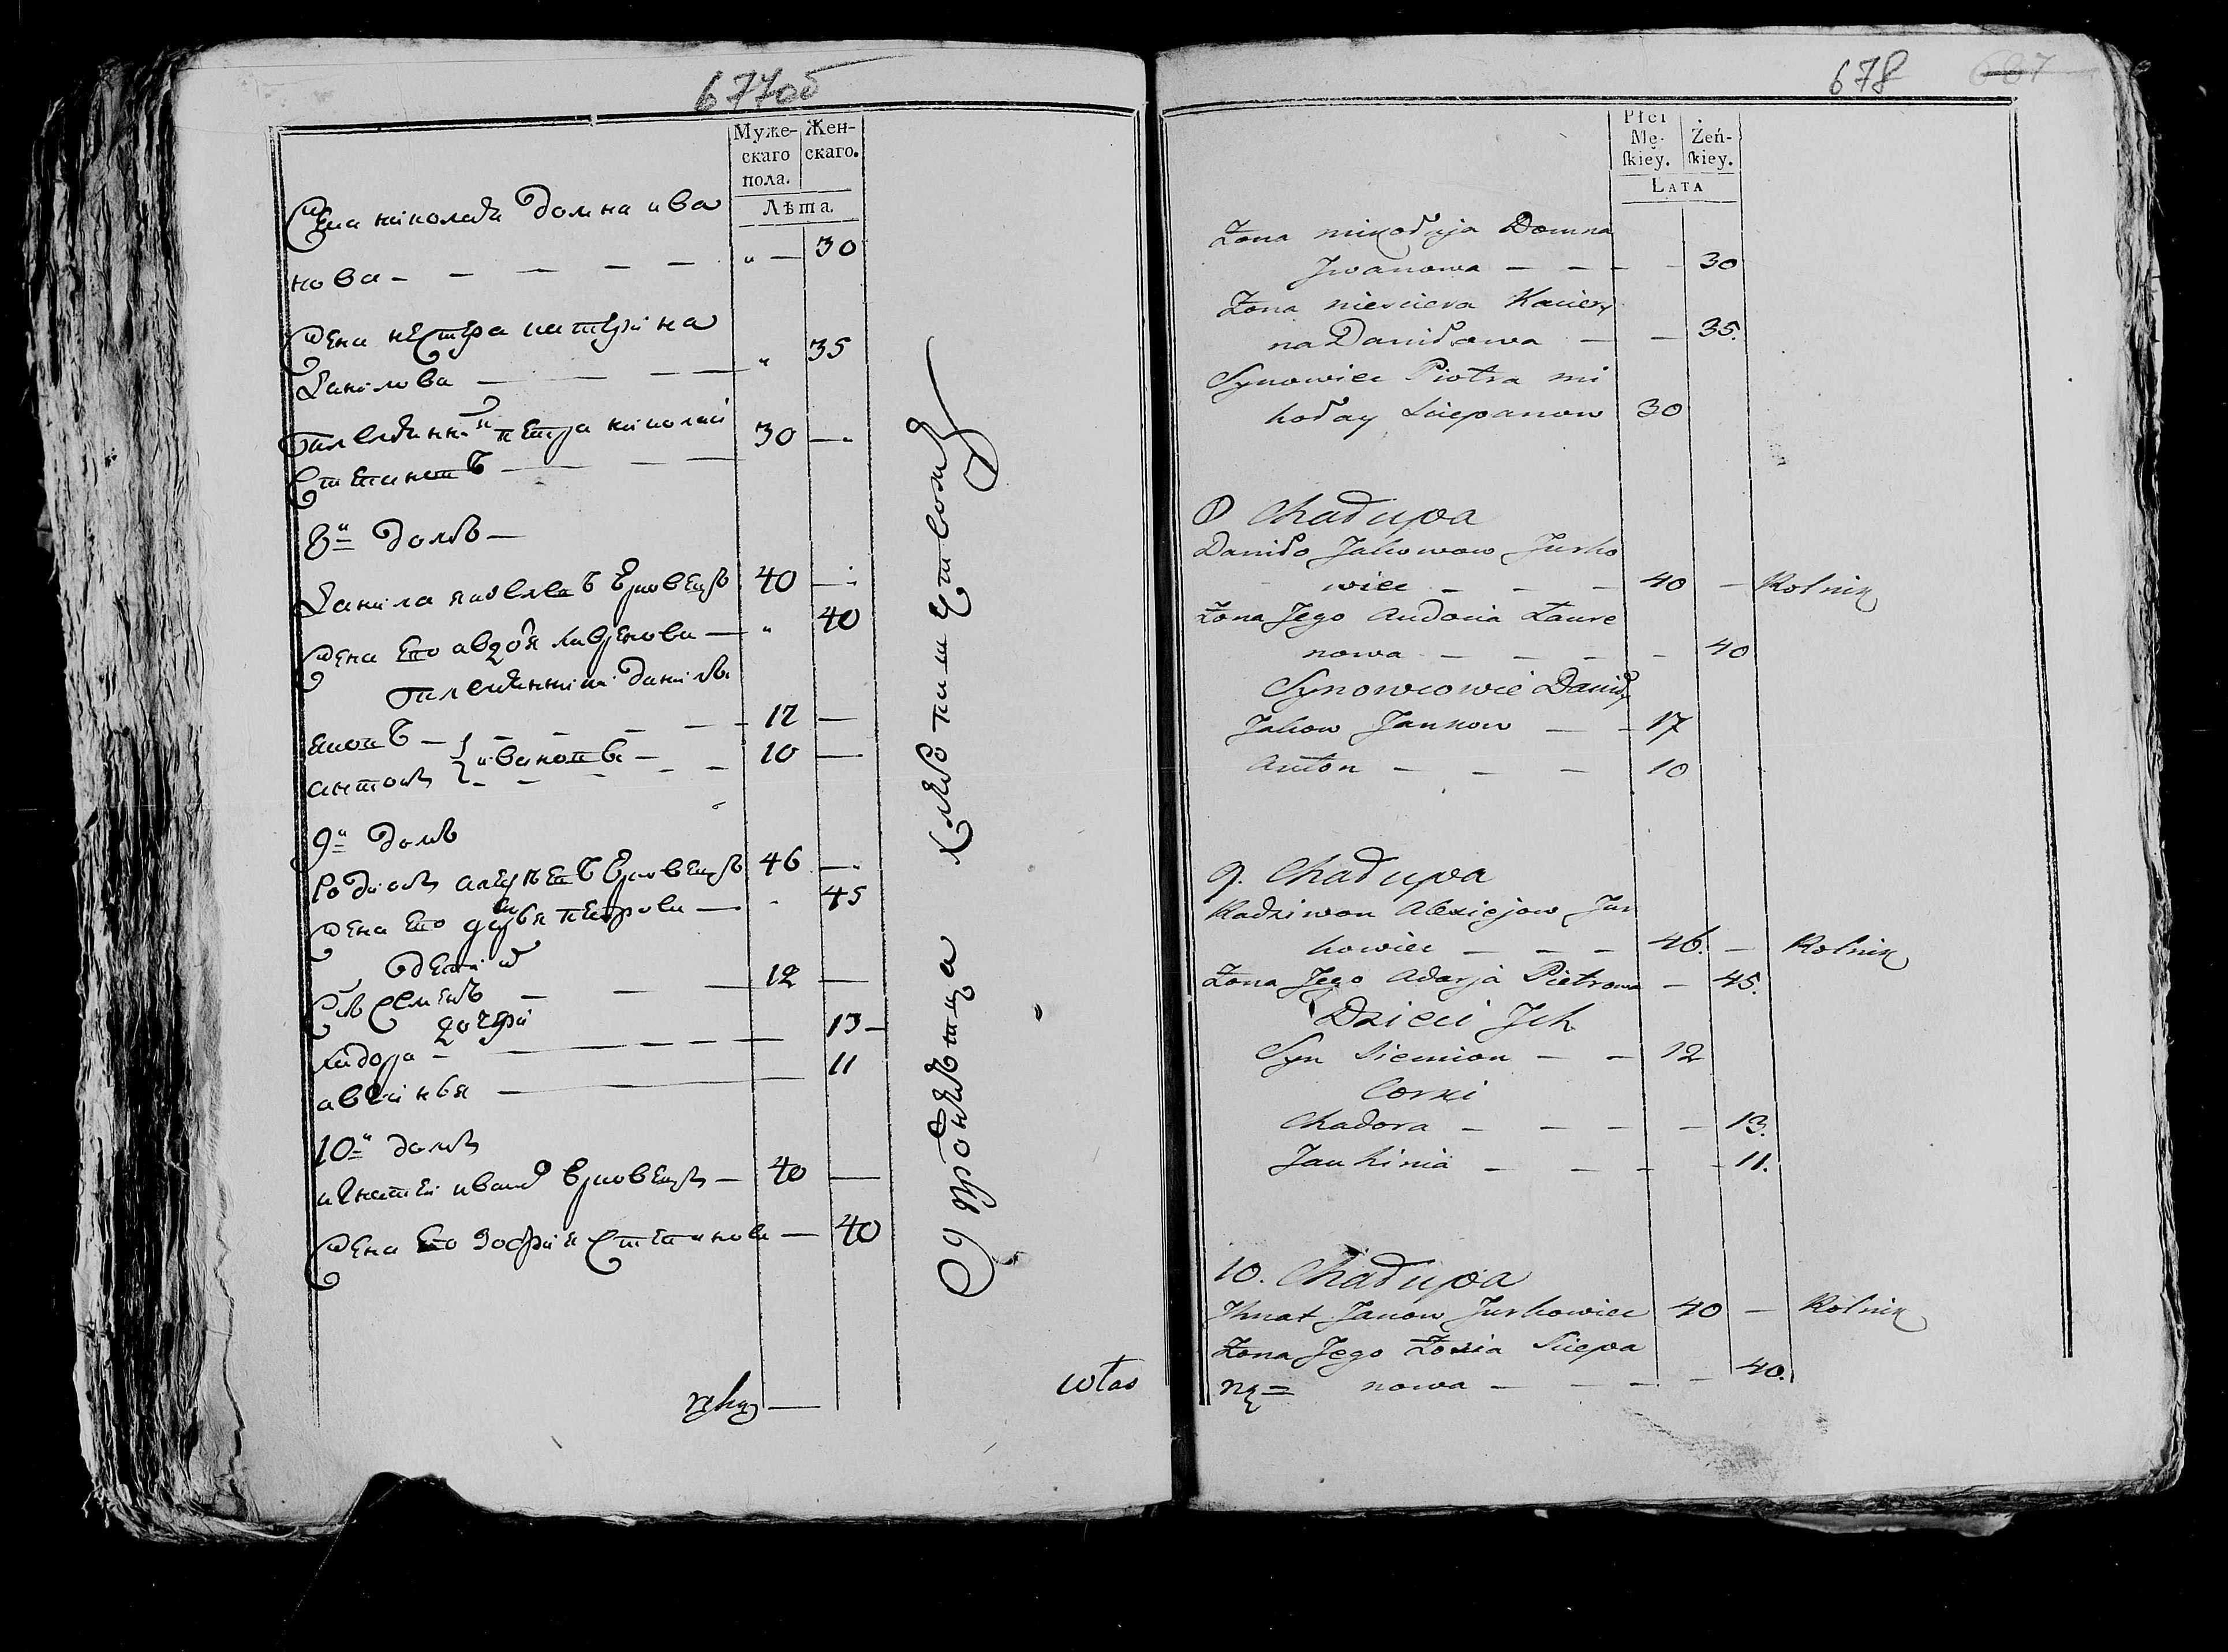 677об
Муже-
скаго
пола.
Жен-
скаго.
Лѣта.
Жена николая домна ива
нова — — — — — " — 30
Жена нестера катерина
Данилова — — — — " 35
племянникъ петра николай 30 —
Степановъ — — — —
8й домъ —
Данила яковлевъ 40 —
Жена его авдотя лавренова — " 40
племянники данилы
яковъ — — — — — 17 —
ивановы —
антонъ — — — — 10 —
9й домъ
Родионъ алексеевъ 46 —
Жена его дарья петрова — " 45
дети их
Сынъ семенъ — — — 12 —
дочери
хадора — — — — — 13 —
авгинья — 11
10й домъ
игнатей иванов — 40 —
Жена его зофия Степанова — 40
ręką —
własną
678
Płci
Mę-
ſkiey.
Żeń-
ſkiey.
LATA
Żona mikołaja Domna
Jwanowa — — — — 30
Żona niesciera Kaciery
na Daniłowa — — 35.
Synowiec Piotra mi
kołay Sciepanow 30
8 Chałupa
Daniło Jakowow Jurko
wiec — — — 40 — Rolnik
Żona Jego Audocia Laure
nowa — — — — — 40
Synowcowie Daniły
Jakow Jankow — — 17
Anton — — — 10
9. Chałupa
Radziwon Alexiejow Jur
kowiec — — — 46. — Rolnik
Żona Jego Adarja Pietrowa — 45.
Dzieci Jch
Syn Siemion — — 12
Corki
Chadora — — — — 13.
Jauhinia — — — — 11.
10. Chałupa
Jhnat Janow Jurkowiec 40 — Rolnik
Żona Jego Zosia Sciepa
nowa — — — — 40.